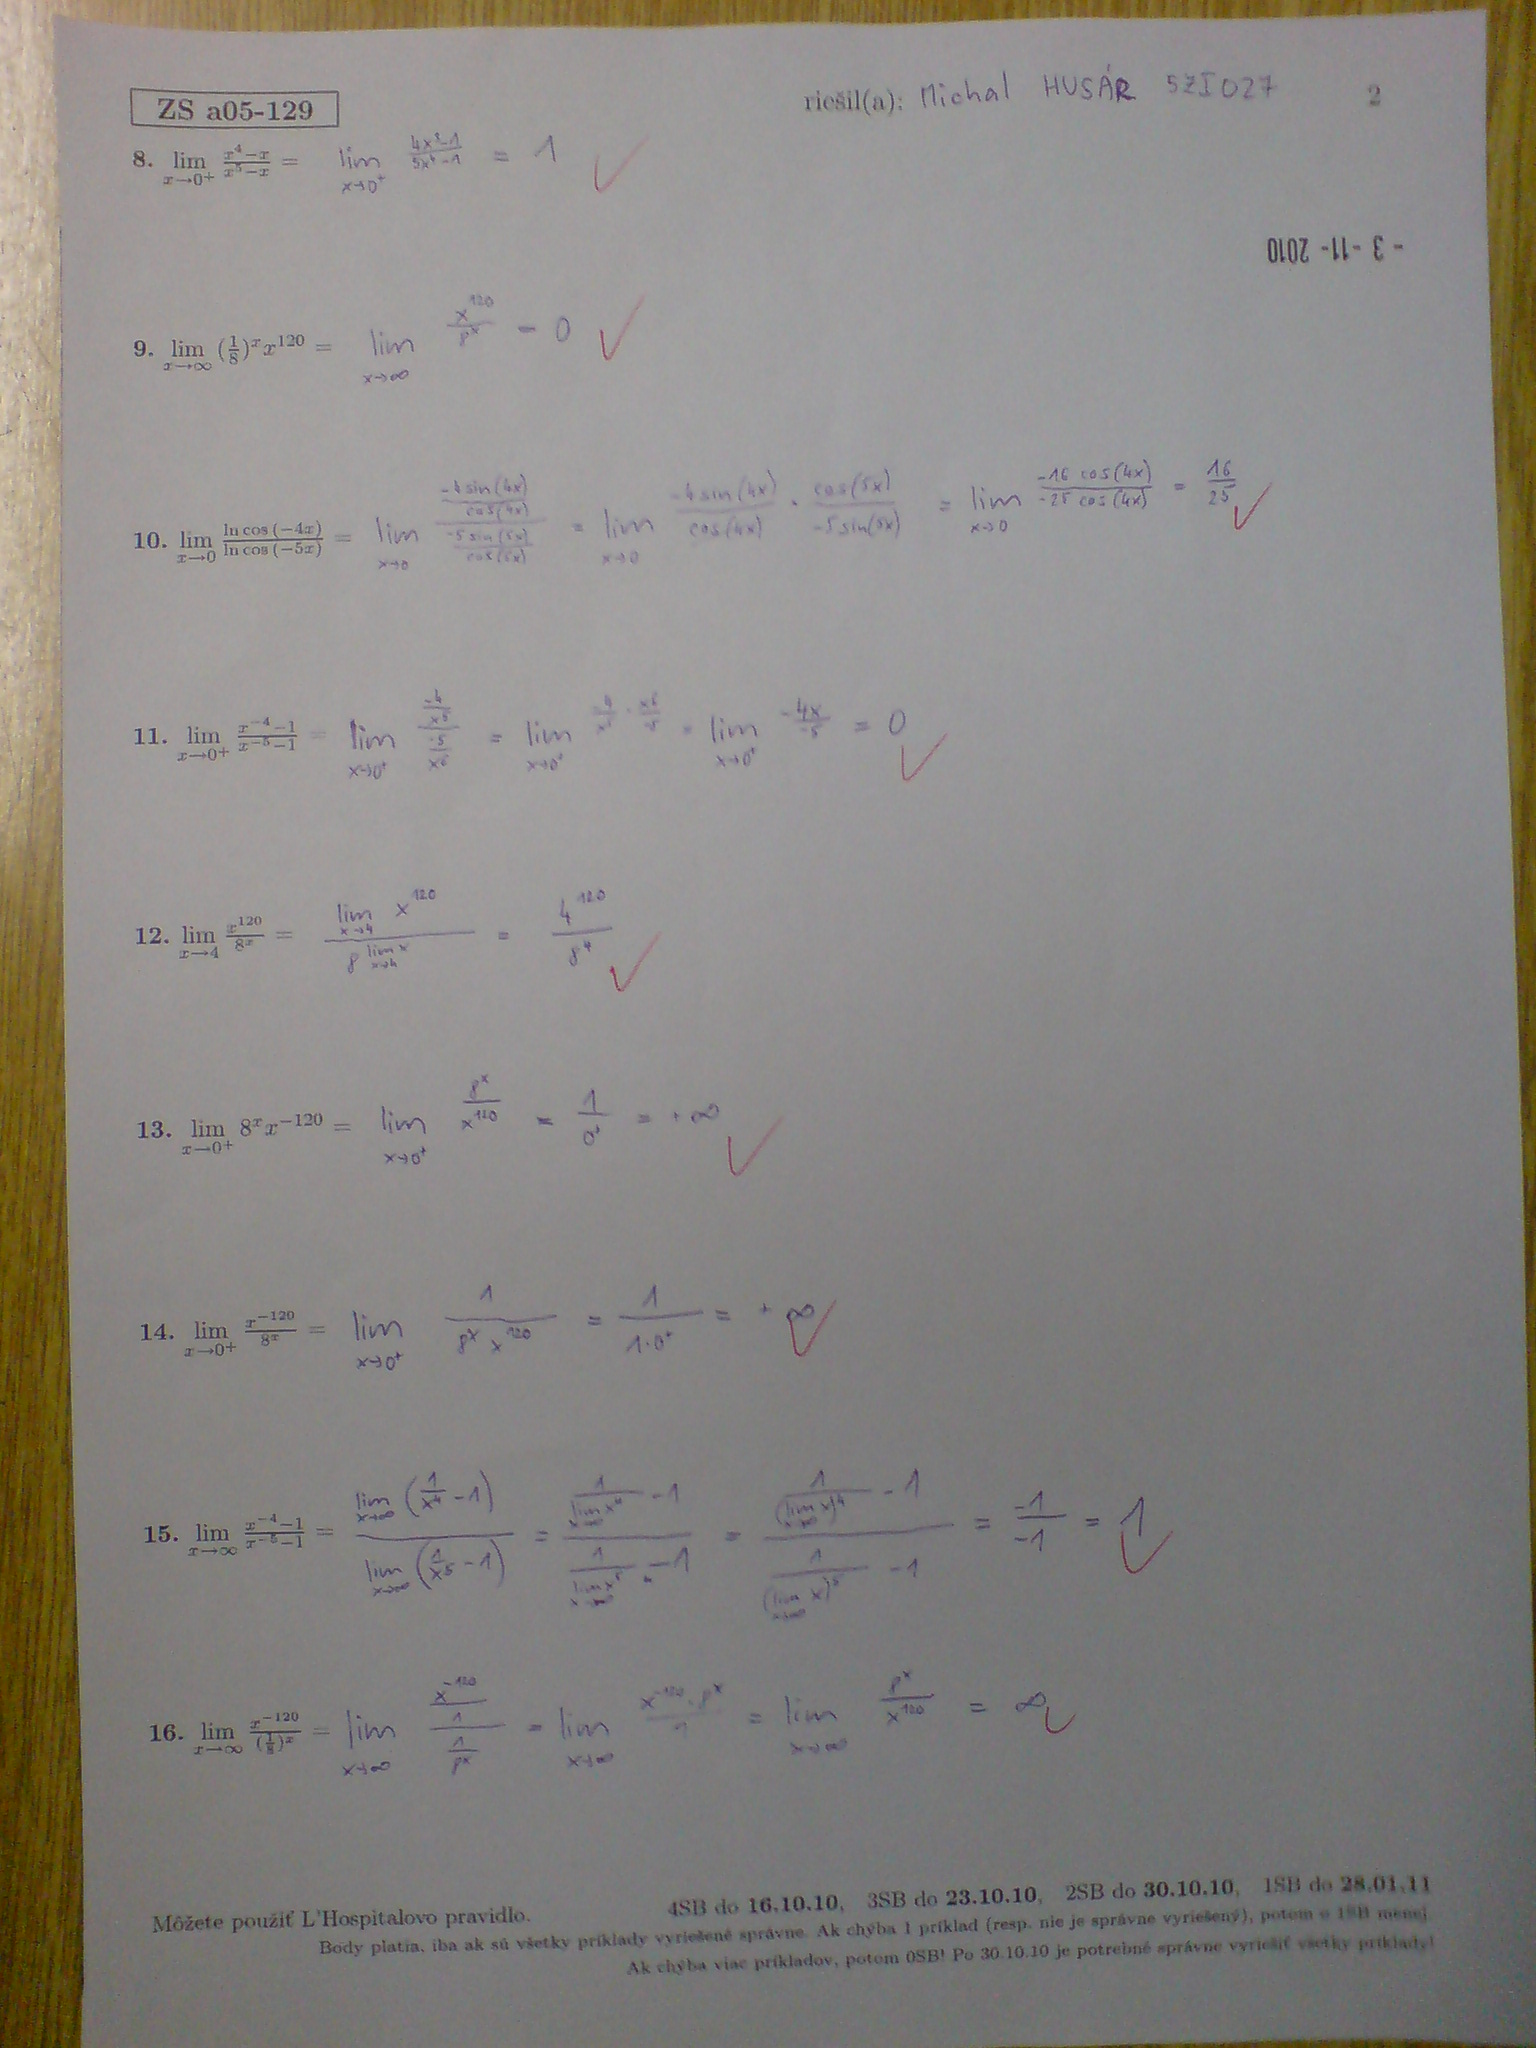 ZS a05-129 riešil(a): Michal HUSÁR 5ZI027 2
8. lim x→0⁺ (x⁴−x)/(x⁵−x) = lim x→0⁺ (4x³−1)/(5x⁴−1) = 1 ✓
- 3 -11- 2010
9. lim x→∞ (1/8)ˣ x¹²⁰ = lim x→∞ x¹²⁰/8ˣ = 0 ✓
10. lim x→0 (ln cos (−4x))/(ln cos (−5x)) = lim x→0 ((−4 sin(4x))/(cos(4x)))/((−5 sin(5x))/(cos(5x))) = lim x→0 (−4 sin(4x))/(cos(4x)) · (cos(5x))/(−5 sin(5x)) = lim x→0 (−16 cos(4x))/(−25 cos(4x)) = 16/25 ✓
11. lim x→0⁺ (x⁻⁴−1)/(x⁻⁵−1) = lim x→0⁺ (−4/x⁵)/(−5/x⁶) = lim x→0⁺ −4/x⁵ · x⁶/−5 = lim x→0⁺ −4x/−5 = 0 ✓
12. lim x→4 x¹²⁰/8ˣ = (lim x→4 x¹²⁰)/(8^(lim x→4 x)) = 4¹²⁰/8⁴ ✓
13. lim x→0⁺ 8ˣx⁻¹²⁰ = lim x→0⁺ 8ˣ/x¹²⁰ = 1/0⁺ = +∞ ✓
14. lim x→0⁺ x⁻¹²⁰/8ˣ = lim x→0⁺ 1/(8ˣ x¹²⁰) = 1/(1·0⁺) = +∞ ✓
15. lim x→∞ (x⁻⁴−1)/(x⁻⁵−1) = (lim x→∞ (1/x⁴ −1))/(lim x→∞ (1/x⁵ −1)) = (1/(lim x→∞ x⁴) −1)/(1/(lim x→∞ x⁵) −1) = (1/(lim x→∞ x)⁴ −1)/(1/(lim x→∞ x)⁵ −1) = −1/−1 = 1 ✓
16. lim x→∞ x⁻¹²⁰/(1/8)ˣ = lim x→∞ (x⁻¹²⁰/1)/(1/8ˣ) = lim x→∞ (x⁻¹²⁰·8ˣ)/1 = lim x→∞ 8ˣ/x¹²⁰ = ∞ ✓
Môžete použiť L'Hospitalovo pravidlo. 4SB do 16.10.10, 3SB do 23.10.10, 2SB do 30.10.10, 1SB do 28.01.11
Body platia, iba ak sú všetky príklady vyriešené správne. Ak chýba 1 príklad (resp. nie je správne vyriešený), potom o 1SB menej.
Ak chýba viac príkladov, potom 0SB! Po 30.10.10 je potrebné správne vyriešiť všetky príklady!